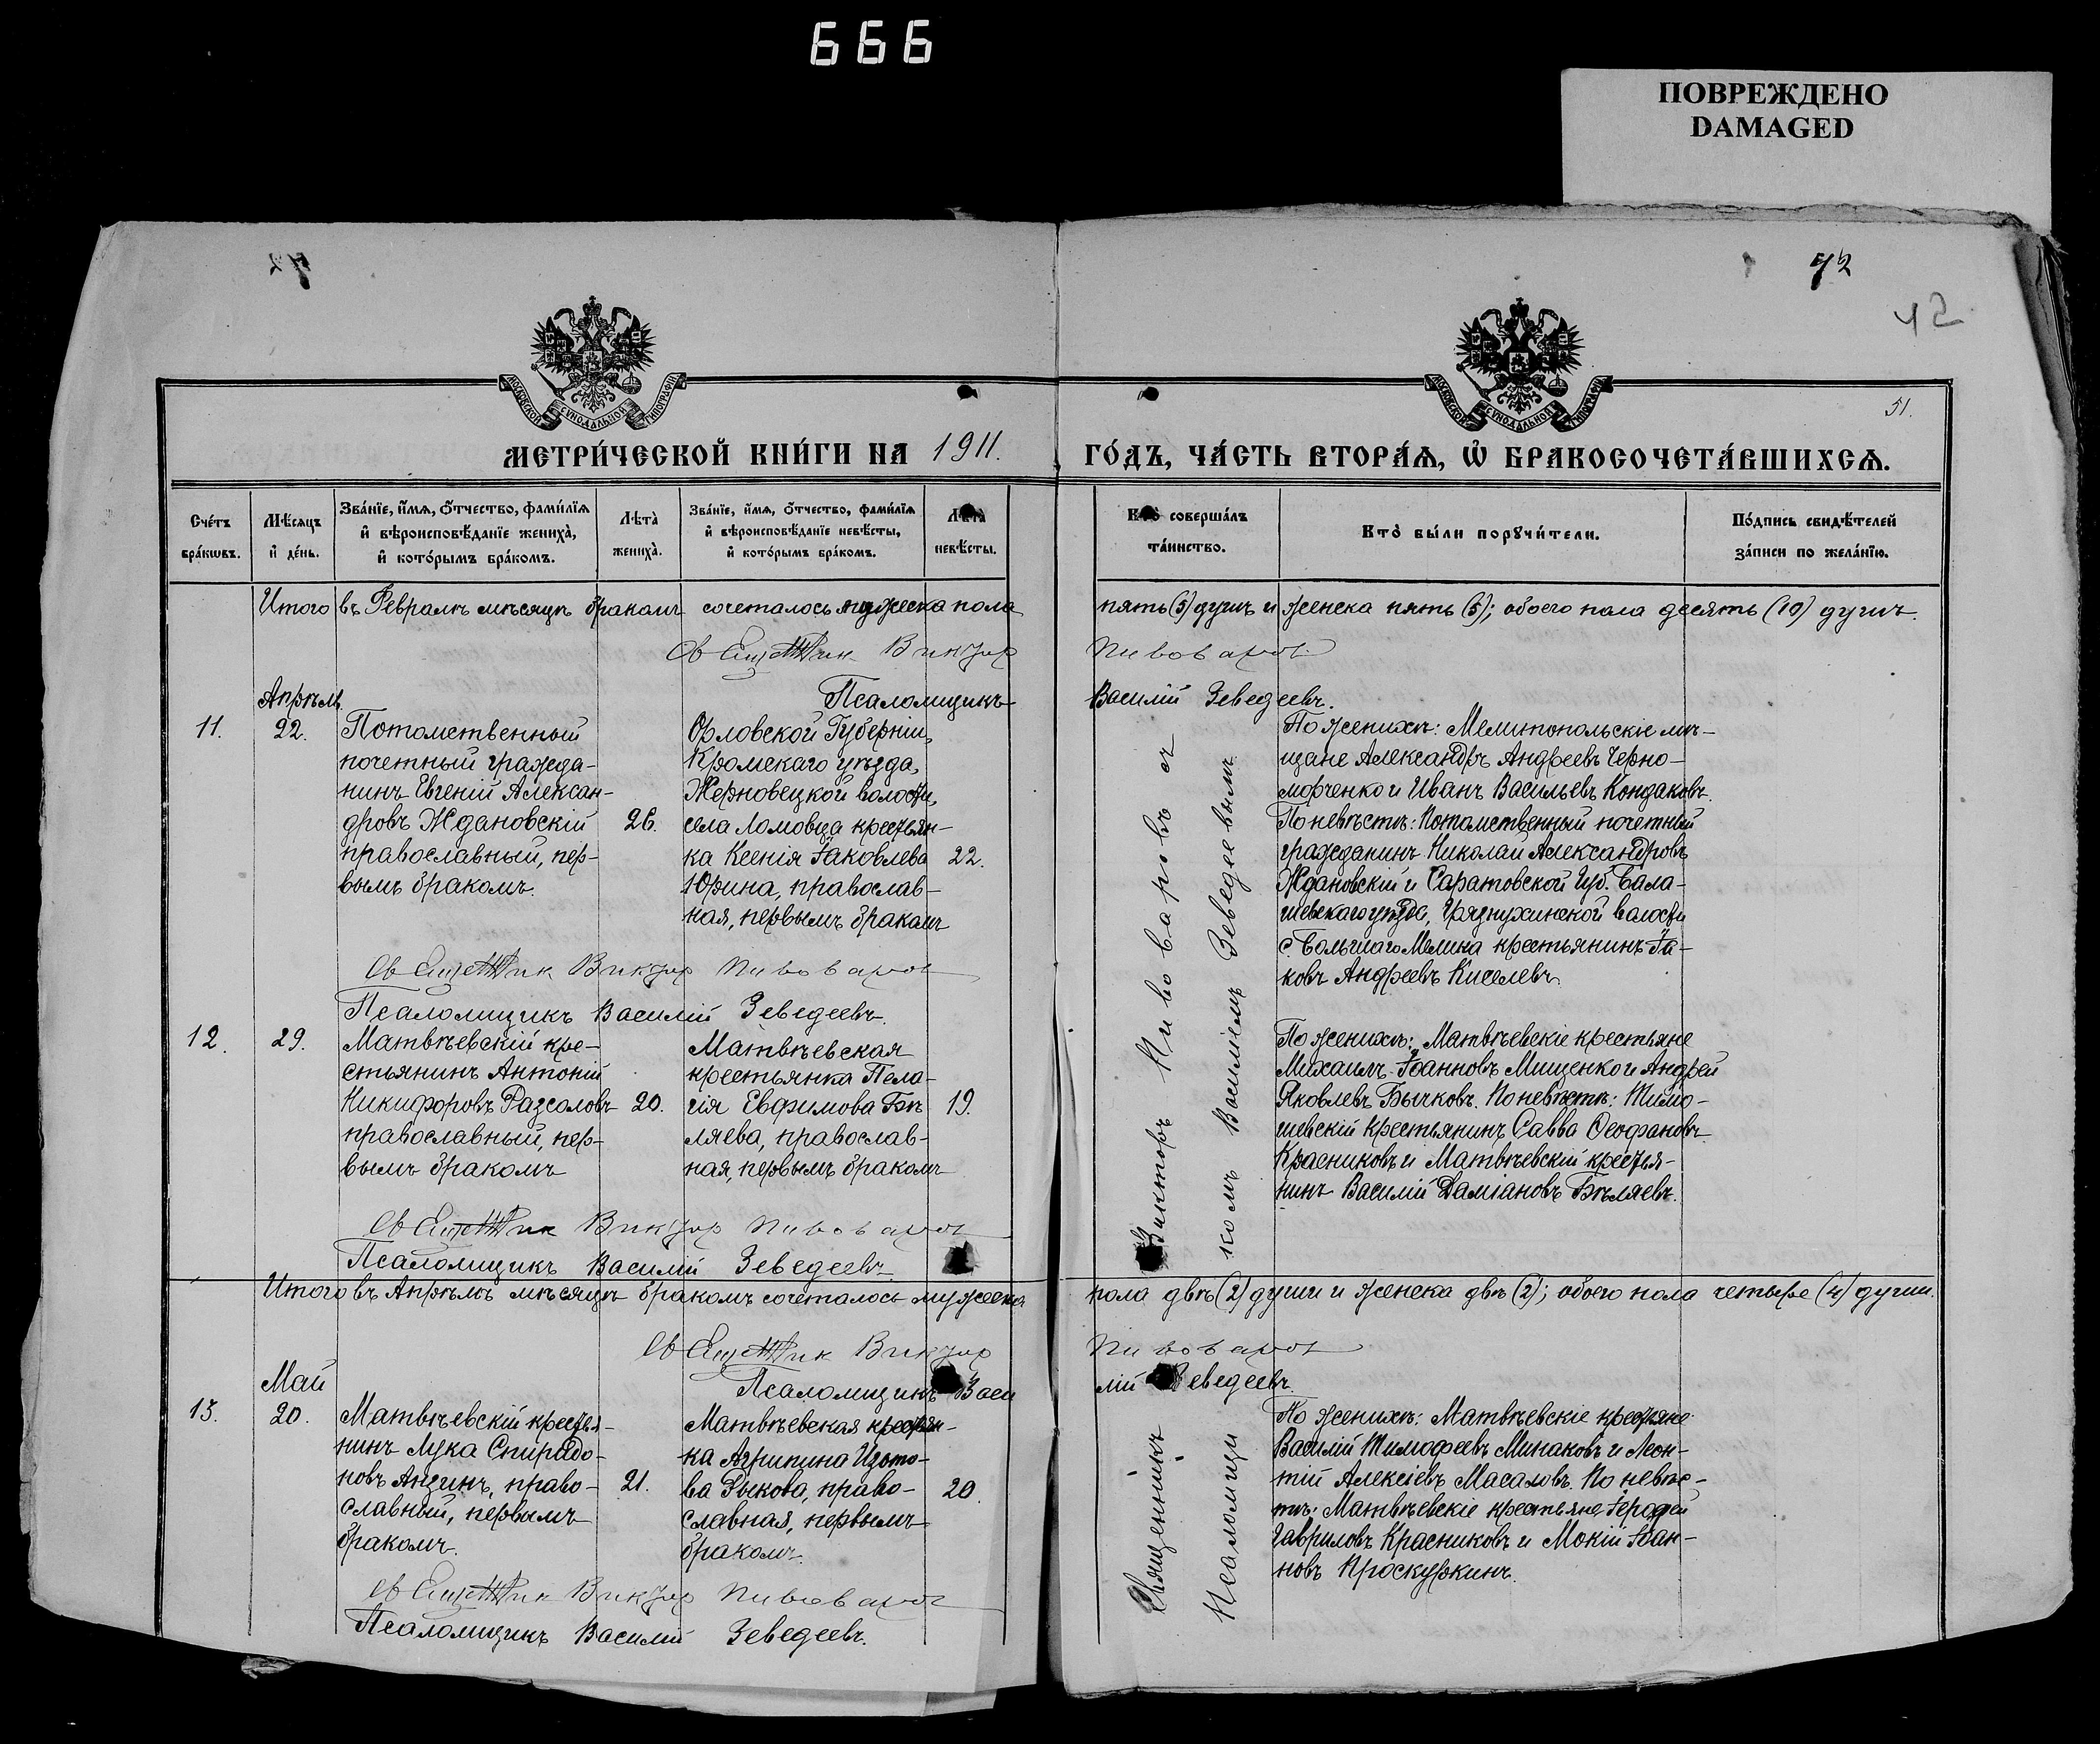 666
ПОВРЕЖДЕНО
DAMAGED
72
42
МОСКОВСКОЙ СУНОДАЛЬНОЙ ТИПОГРАФІИ
МОСКОВСКОЙ СУНОДАЛЬНОЙ ТИПОГРАФІИ
51.
МЕТРИ́ЧЕСКОЙ КНИ́ГИ НА 1911. ГО́ДЪ, ЧА́СТЬ ВТОРА́Ѧ, Ѡ БРАКОСОЧЕТА́ВШИХСѦ.
Сче́тъ бра́кѡвъ.
Мѣ́сяцъ и де́нь.
Зва́нїе, и́мѧ, ѻ́тчество, фами́лїѧ и вѣроисповѣ́данїе жениха̀, и кото́рымъ бра́комъ.
Лѣта̀ жениха̀.
Зва́нїе, и́мѧ, ѻ́тчество, фами́лїѧ и вѣроисповѣ́данїе невѣ́сты, и кото́рымъ бра́комъ.
Лѣта̀ невѣ́сты.
Кто̀ соверша́лъ та́инство.
Кто̀ бы́ли порꙋчи́тели.
По́дпись свидѣ́телей за́писи по жела́нїю.
Итого въ Февралѣ мѣсяцѣ бракомъ сочеталось мужеска пола пять (5) душъ и женска пять (5); обоего пола десять (10) душъ.
Священник Виктор Пивоваров
Псаломщикъ Василій Зеведеевъ.
Апрѣль
11.
22.
Потомственный
почетный гражда-
нинъ Евгеній Алексан-
дровъ Ждановскій
православный, пер-
вымъ бракомъ.
26.
Орловской Губерніи,
Кромскаго уѣзда,
Жерновецкой волости,
села Ломовца крестьян-
ка Ксенія Іаковлева
Юрина, православ-
ная, первымъ бракомъ
22.
По женихѣ: Мелитопольскіе мѣ-
щане Александръ Андреевъ Черно-
морченко и Иванъ Васильевъ Кондаковъ.
По невѣстѣ: Потомственный почетный
гражданинъ Николай Александровъ
Ждановскій и Саратовской Губ. Бала-
шевскаго уѣзда, Грязнухинской волости
с. Большаго Мелика крестьянинъ Іа-
ковъ Андреевъ Киселевъ.
Священник Виктор Пивоваров
Псаломщикъ Василій Зеведеевъ.
12.
29.
Матвѣевскій кре-
стьянинъ Антоній
Никифоровъ Разсоловъ
православный, пер-
вымъ бракомъ
20.
Матвѣевская
крестьянка Пела-
гія Евфимова Бѣ
ляева, православ-
ная, первымъ бракомъ
19.
По женихѣ: Матвѣевскіе крестьяне
Михаилъ Іоанновъ Мищенко и Андрей
Яковлевъ Бычковъ. По невѣстѣ: Тимо-
шевскій крестьянинъ Савва Ѳеофановъ
Красниковъ и Матвѣевскій крестья-
нинъ Василій Даміановъ Бѣляевъ.
Священник Виктор Пивоваров
Псаломщикъ Василій Зеведеевъ
Итого въ Апрѣлѣ мѣсяцѣ бракомъ сочеталось мужеска пола двѣ (2) души и женска двѣ (2); обоего пола четыре (4) души.
Священник Виктор Пивоваров
Псаломщикъ Васи лій Зеведеевъ.
Май
13.
20.
Матвѣевскій крестья-
нинъ Лука Спиридо-
новъ Анцинъ, право-
славный, первымъ
бракомъ.
21.
Матвѣевская крестьян-
ка Агрипина Изото-
ва Зыкова, право-
славная, первымъ
бракомъ.
20.
По женихѣ: Матвѣевскіе крестьяне
Василій Тимофеевъ Минаковъ и Леон-
тій Алексіевъ Масаловъ. По невѣс-
тѣ: Матвѣевскіе крестьяне
Гавриловъ Красниковъ и Мокій Іоан-
новъ Проскуркинъ.
Священникъ Викторъ Пивоваровъ съ
Псаломщикомъ Василіемъ Зеведеевымъ
Священник Виктор Пивоваров
Псаломщикъ Василій Зеведеевъ.